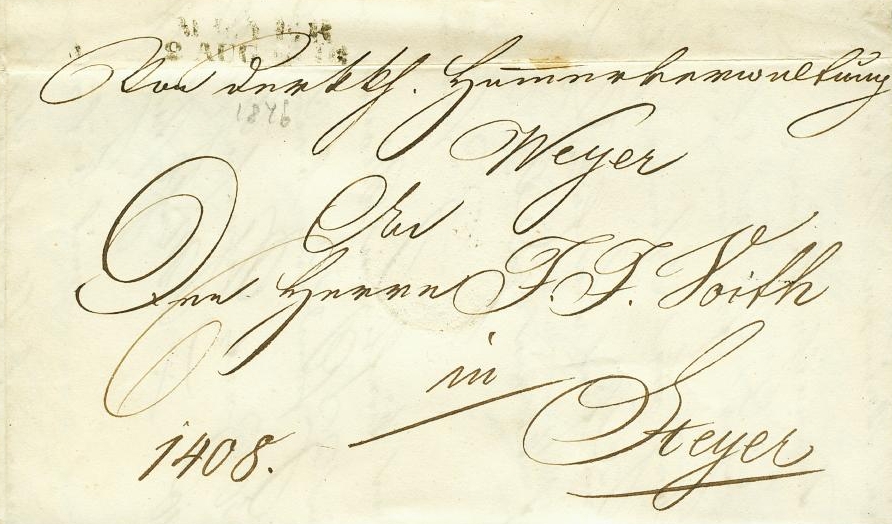 WEYER
8 AUG
Von der kk. Hammerverwaltung
1846
Weyer
An
Den Herrn J. J. Voith
in
Steyer
1408.